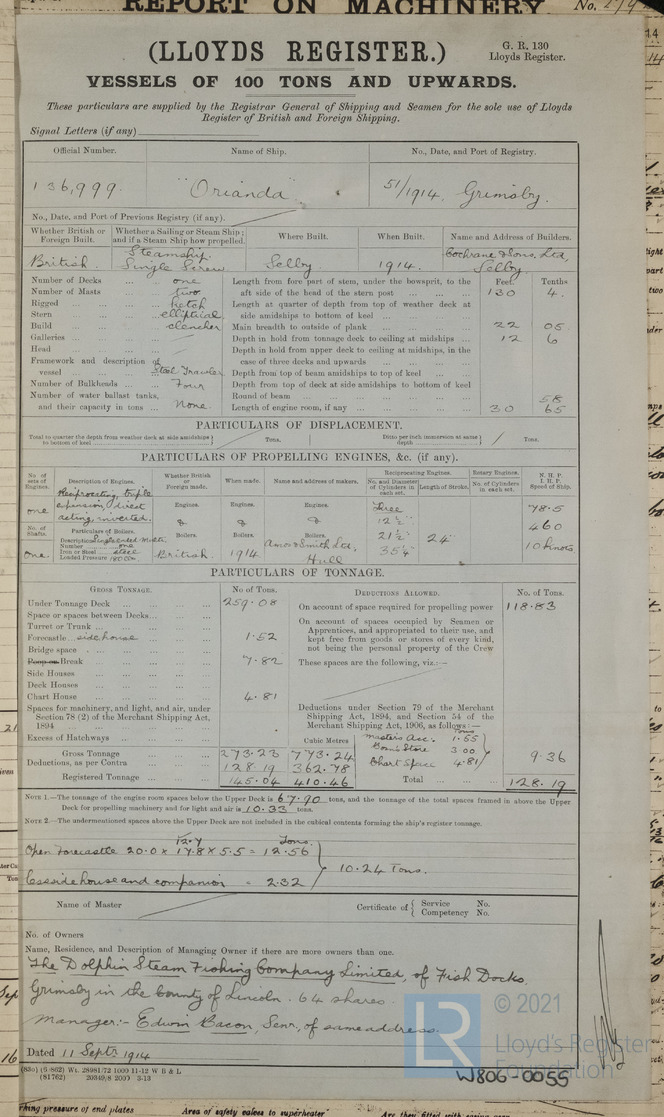 REPORT ON MACHINERY No.
(LLOYDS REGISTER.)
G. R. 130
Lloyds Register.
VESSELS OF 100 TONS AND UPWARDS.
These particulars are supplied by the Registrar General of Shipping and Seamen for the sole use of Lloyds
Register of British and Foreign Shipping.
Signal Letters (if any)
Official Number. Name of Ship. No., Date, and Port of Registry.
136,999. "Orianda" 51/1914, Grimsby.
No., Date, and Port of Previous Registry (if any).
Whether British or Foreign Built. Whether a Sailing or Steam Ship; and if a Steam Ship how propelled. Where Built. When Built. Name and Address of Builders.
British. Steamship. Single Screw Selby 1914. Cochrane & Sons, Ltd, Selby.
Feet Tenths
Number of Decks ... one
Number of Masts ... two
Rigged ... ketch
Stern ... elliptical
Build ... clencher
Galleries ...
Head ...
Framework and description of
vessel ... Steel Trawler
Number of Bulkheads ... Four
Number of water ballast tanks,
and their capacity in tons ... None.
Length from fore part of stem, under the bowsprit, to the
aft side of the head of the stern post ... 130 4.
Length at quarter of depth from top of weather deck at
side amidships to bottom of keel ...
Main breadth to outside of plank ... 22 05
Depth in hold from tonnage deck to ceiling at midships ... 12 6
Depth in hold from upper deck to ceiling at midships, in the
case of three decks and upwards ...
Depth from top of beam amidships to top of keel ...
Depth from top of deck at side amidships to bottom of keel
Round of beam ... 58
Length of engine room, if any ... 30 65
PARTICULARS OF DISPLACEMENT.
Total to quarter the depth from weather deck at side amidships to bottom of keel ... Tons. Ditto per inch immersion at same depth ... Tons.
PARTICULARS OF PROPELLING ENGINES, &c. (if any).
No. of sets of Engines. Description of Engines. Whether British or Foreign made. When made. Name and address of makers. Reciprocating Engines. Rotary Engines. N. H. P. I. H. P. Speed of Ship.
No. and Diameter of Cylinders in each set. Length of Stroke. No. of Cylinders in each set.
one Reciprocating, triple
expansion, direct
acting, inverted.
Engines. Engines. Engines.
& & &
Boilers. Boilers. Boilers.
Three
12½"
21½"
35¼"
24"
78.5
460
10 knots
No. of Shafts. Particulars of Boilers.
Description Single ended Mult.
Number ... one
Iron or Steel ... steel
Loaded Pressure 180
One. British. 1914 Amos & Smith Ltd, Hull
PARTICULARS OF TONNAGE.
GROSS TONNAGE. No of Tons. DEDUCTIONS ALLOWED. No. of Tons.
Under Tonnage Deck ... 259.08
Space or spaces between Decks ...
Turret or Trunk ...
Forecastle side house ... 1.52
Bridge space ...
Poop or Break ... 7.82
Side Houses ...
Deck Houses ...
Chart House ... 4.81
Spaces for machinery, and light, and air, under
Section 78 (2) of the Merchant Shipping Act,
1894 ...
Excess of Hatchways ... Cubic Metres
Gross Tonnage ... 273.23 773.24
Deductions, as per Contra ... 128.19 362.78
Registered Tonnage ... 145.04 410.46
On account of space required for propelling power 118.83
On account of spaces occupied by Seamen or
Apprentices, and appropriated to their use, and
kept free from goods or stores of every kind,
not being the personal property of the Crew
These spaces are the following, viz.:—
Deductions under Section 79 of the Merchant
Shipping Act, 1894, and Section 54 of the
Merchant Shipping Act, 1906, as follows:—
Tons
Masters Acc. 1.55
Bosn's Store 3.00
Chart Space 4.81
9.36
Total ... 128.19
NOTE 1.—The tonnage of the engine room spaces below the Upper Deck is 67.90 tons, and the tonnage of the total spaces framed in above the Upper
Deck for propelling machinery and for light and air is 10.33 tons.
NOTE 2.—The undermentioned spaces above the Upper Deck are not included in the cubical contents forming the ship's register tonnage.
12.7 Tons.
Open Forecastle 20.0 x 17.8 x 5.5 = 12.56
10.24 Tons.
Less side house and companion = 2.32
Name of Master Certificate of Service No.
Competency No.
No. of Owners
Name, Residence, and Description of Managing Owner if there are more owners than one.
The Dolphin Steam Fishing Company Limited, of Fish Docks,
Grimsby in the County of Lincoln. 64 shares.
Manager:- Edwin Bacon, Senr, of same address.
Dated 11 Septr 1914
© 2021
Lloyd's Register
Foundation
LR
W806-0055
ning pressure of end plates Area of safety valves to superheater Are they fitted with easing gear